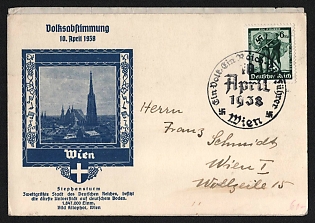 Volksabstimmung
10. April 1938
Wien
Stephansturm
Zweitgrößte Stadt des Deutschen Reiches, besitzt
die älteste Universität auf deutschem Boden.
1,847.000 Einw.
6
Deutsches Reich
Ein Volk, Ein Reich, Ein Führer
10
April
1938
Wien
Herrn
Franz Schmidt
Wien I
Wollzeile 15